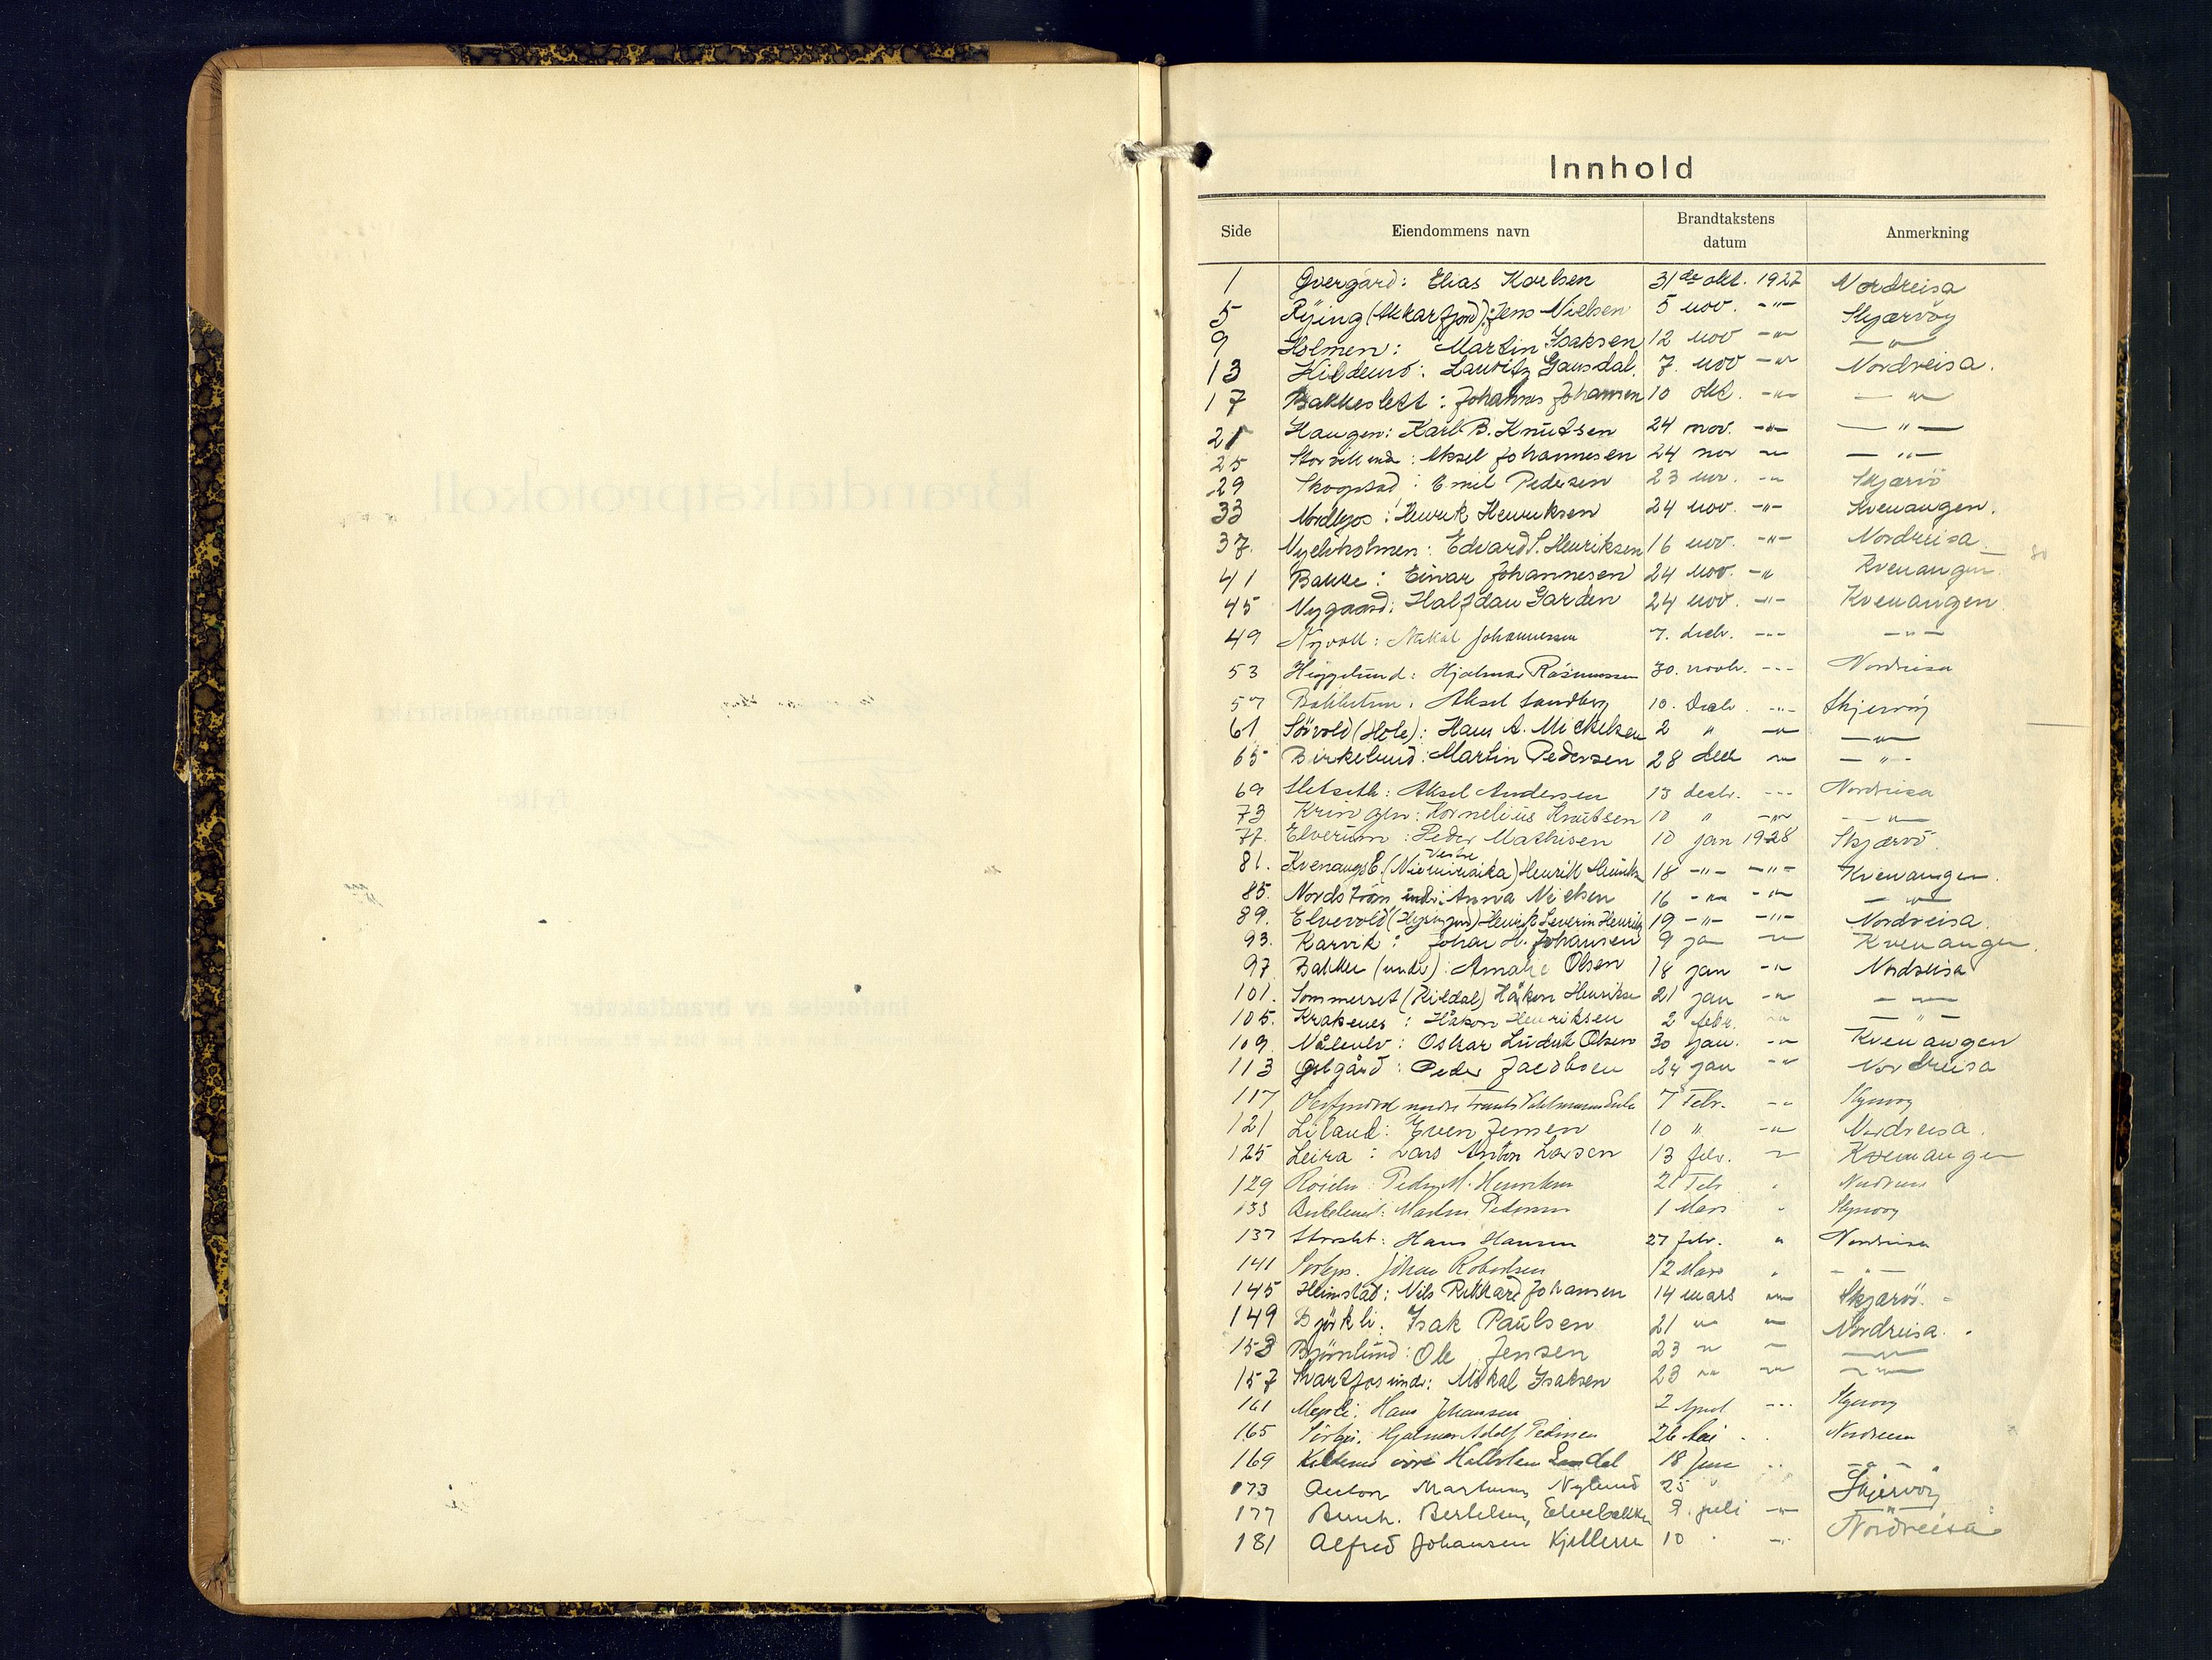 Innhold
Side Eiendommens navn Brandtakstens datum Anmerkning
1 Øvergård: Elias Karlsen 31de okt. 1927 Nordreisa
5 Ryeng (Akkarfjord): Jens Nielsen 5 nov. -"- Skjærvöy
9 Holmen: Martin Isaksen 12 nov -"- -"-
13 Kildemo: Lauritz Gausdal. 7. nov -"- Nordreisa.
17 Bakkeslett: Johannes Johansen 10 okt. -"- -"-
21 Haugen: Karl B. Knutsen 24 nov. -"- -"-
25 Storvik indr: Aksel Johannesen 24 nov -"- -"-
29 Skogstad: Emil Pedersen 23 nov. -"- Skjærvö
33 Nordkjos: Henrik Henriksen 24 nov. -"- Kvenangen.
37. Nyelvholmen: Edvard S. Henriksen 16 nov. -"- Nordreisa
41 Bakke: Einar Johannesen 24 nov. -"- Kvenangen
45 Nygaard: Halfdan Garden 24 nov. -"- Kvenangen
49 Nyvoll: Johannessen 7. decbr. -"- -"-
53 Heggelund: Hjalmar Rasmussen 30. novbr. -"- Nordreisa
57 Aksel Sandberg 10. Decbr. -"- Skjervöy
61 Sövold (Hole): Hans A. Mickelsen 2 " -"- -"-
65 Birkelund: Martin Pedersen 28 dec -"- -"-
69 Sletseth: Aksel Andersen 13 decbr. -"- Nordreisa
73 Kringen: Kornelius Knutsen 10 " -"- -"-
77. Elverum: Peder Mathisen 10 jan 1928 Skjærvö.
81. Kvenangs E. Vestre Henrik 18 -"- -"- Kvenangen.
85. Nordström indr: Anna Nielsen 16 -"- -"- -"-
89. Elvevold Henrik Severin Henriks 19 -"- -"- Nordreisa.
93. Karvik: Johan H. Johansen 9 ja -"- Kvenangen.
97 Bakke (indr): Amalie Olsen 18 jan -"- Nordreisa
101. Sommerset (Kildal) Håkon Henrikse 21 jan -"- -"-
105. Krakenes: Håkon Henriksen 2 febr. -"- -"-
109. Nålelv: Oskar Ludvik Olsen 30 jan. -"- Kvenangen
113 Østgård: Peder Jacobsen 24 jan -"- Nordreisa
117 nedre 7 Febr. -"- Skjervøy
121 Liland: Even Jensen 10 " -"- Nordreisa.
125 Leira: Lars Anton Larsen 13 febr. -"- Kvenangen
129 Peder M. Henriksen 21 Feb " Nordreisa
133 Birkelund: Martin Pedersen 1 Mars " Skjervøy
137 Storslet: Hans Hansen 27 febr. " Nordreisa
141 Sørkjos. Johan Robertsen 12 Mars " -"-
145 Heimstad: Nils Rikkard Johansen 14 mars -"- Skjærvö. -
149 Björkli: Isak Paulsen 21 -"- -"- Nordreisa.
153 Björnlund: Ole Jensen 23 -"- -"- -"-
157 Svartfos indr: Mikal Isaksen 23 -"- -"- -"-
161 Hans Johansen 2 April -"- Skjervøy
165 Sörkjos. Hjalmar Adolf Pedersen 26 Mai " Nordreisa
169 Kildemo övre Hallsten 18 Juni " -"-
173 Anton Martinus Nylund 25 " Skjervöy
177 Bernh. Bertelsen, Elvebakken 3. juli -"- "
181 Alfred Johansen Kjelleren 10 " -"- Nordreisa